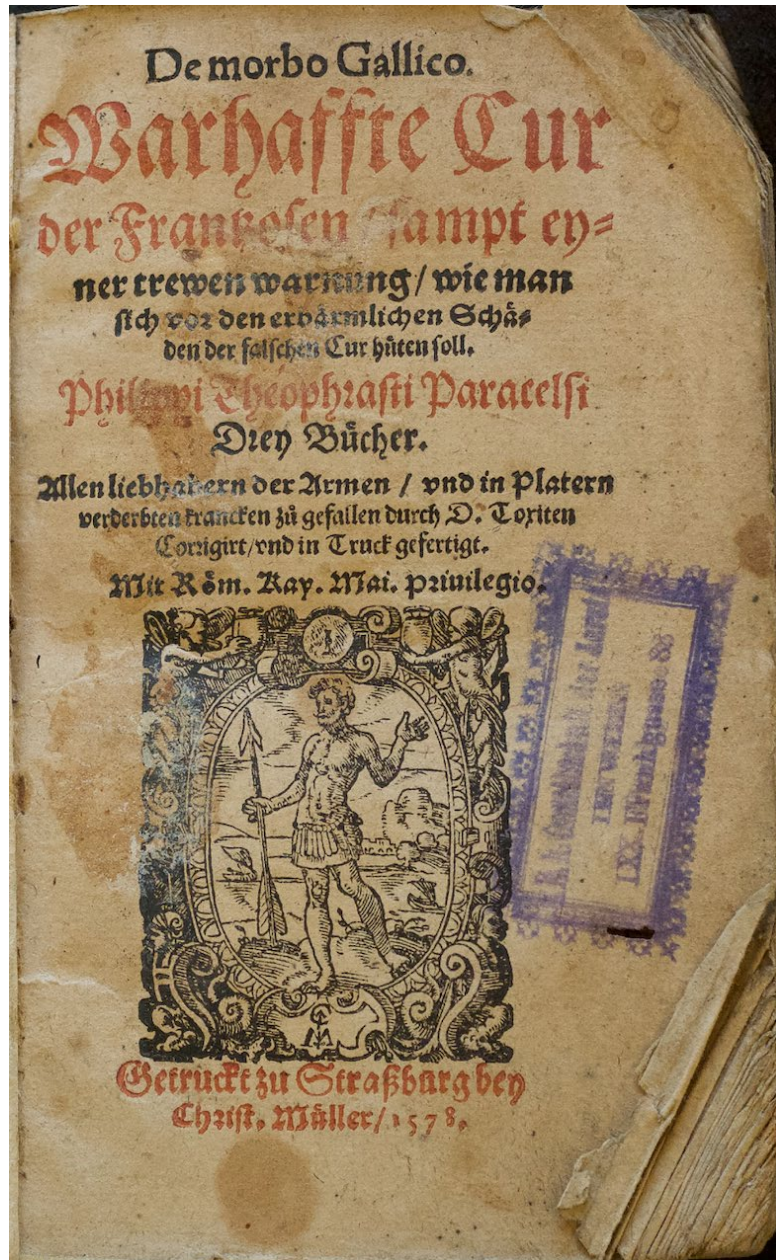 De morbo Gallico.
Warhaffte Cur
der Frantzosen / sampt ey⸗
ner trewen warnung / wie man
sich vor den erbärmlichen Schä⸗
den der falschen Cur hüten soll.
Philippi Theophrasti Paracelsi
Drey Bücher.
Allen liebhabern der Armen / vnd in Platern
verderbten krancken zů gefallen durch D. Toxiten
Corrigirt/vnd in Truck gefertigt.
Mit Röm. Kay. Mai. priuilegio.
Getruckt zu Straßburg bey
Christ. Müller/1578.
IN WIEN